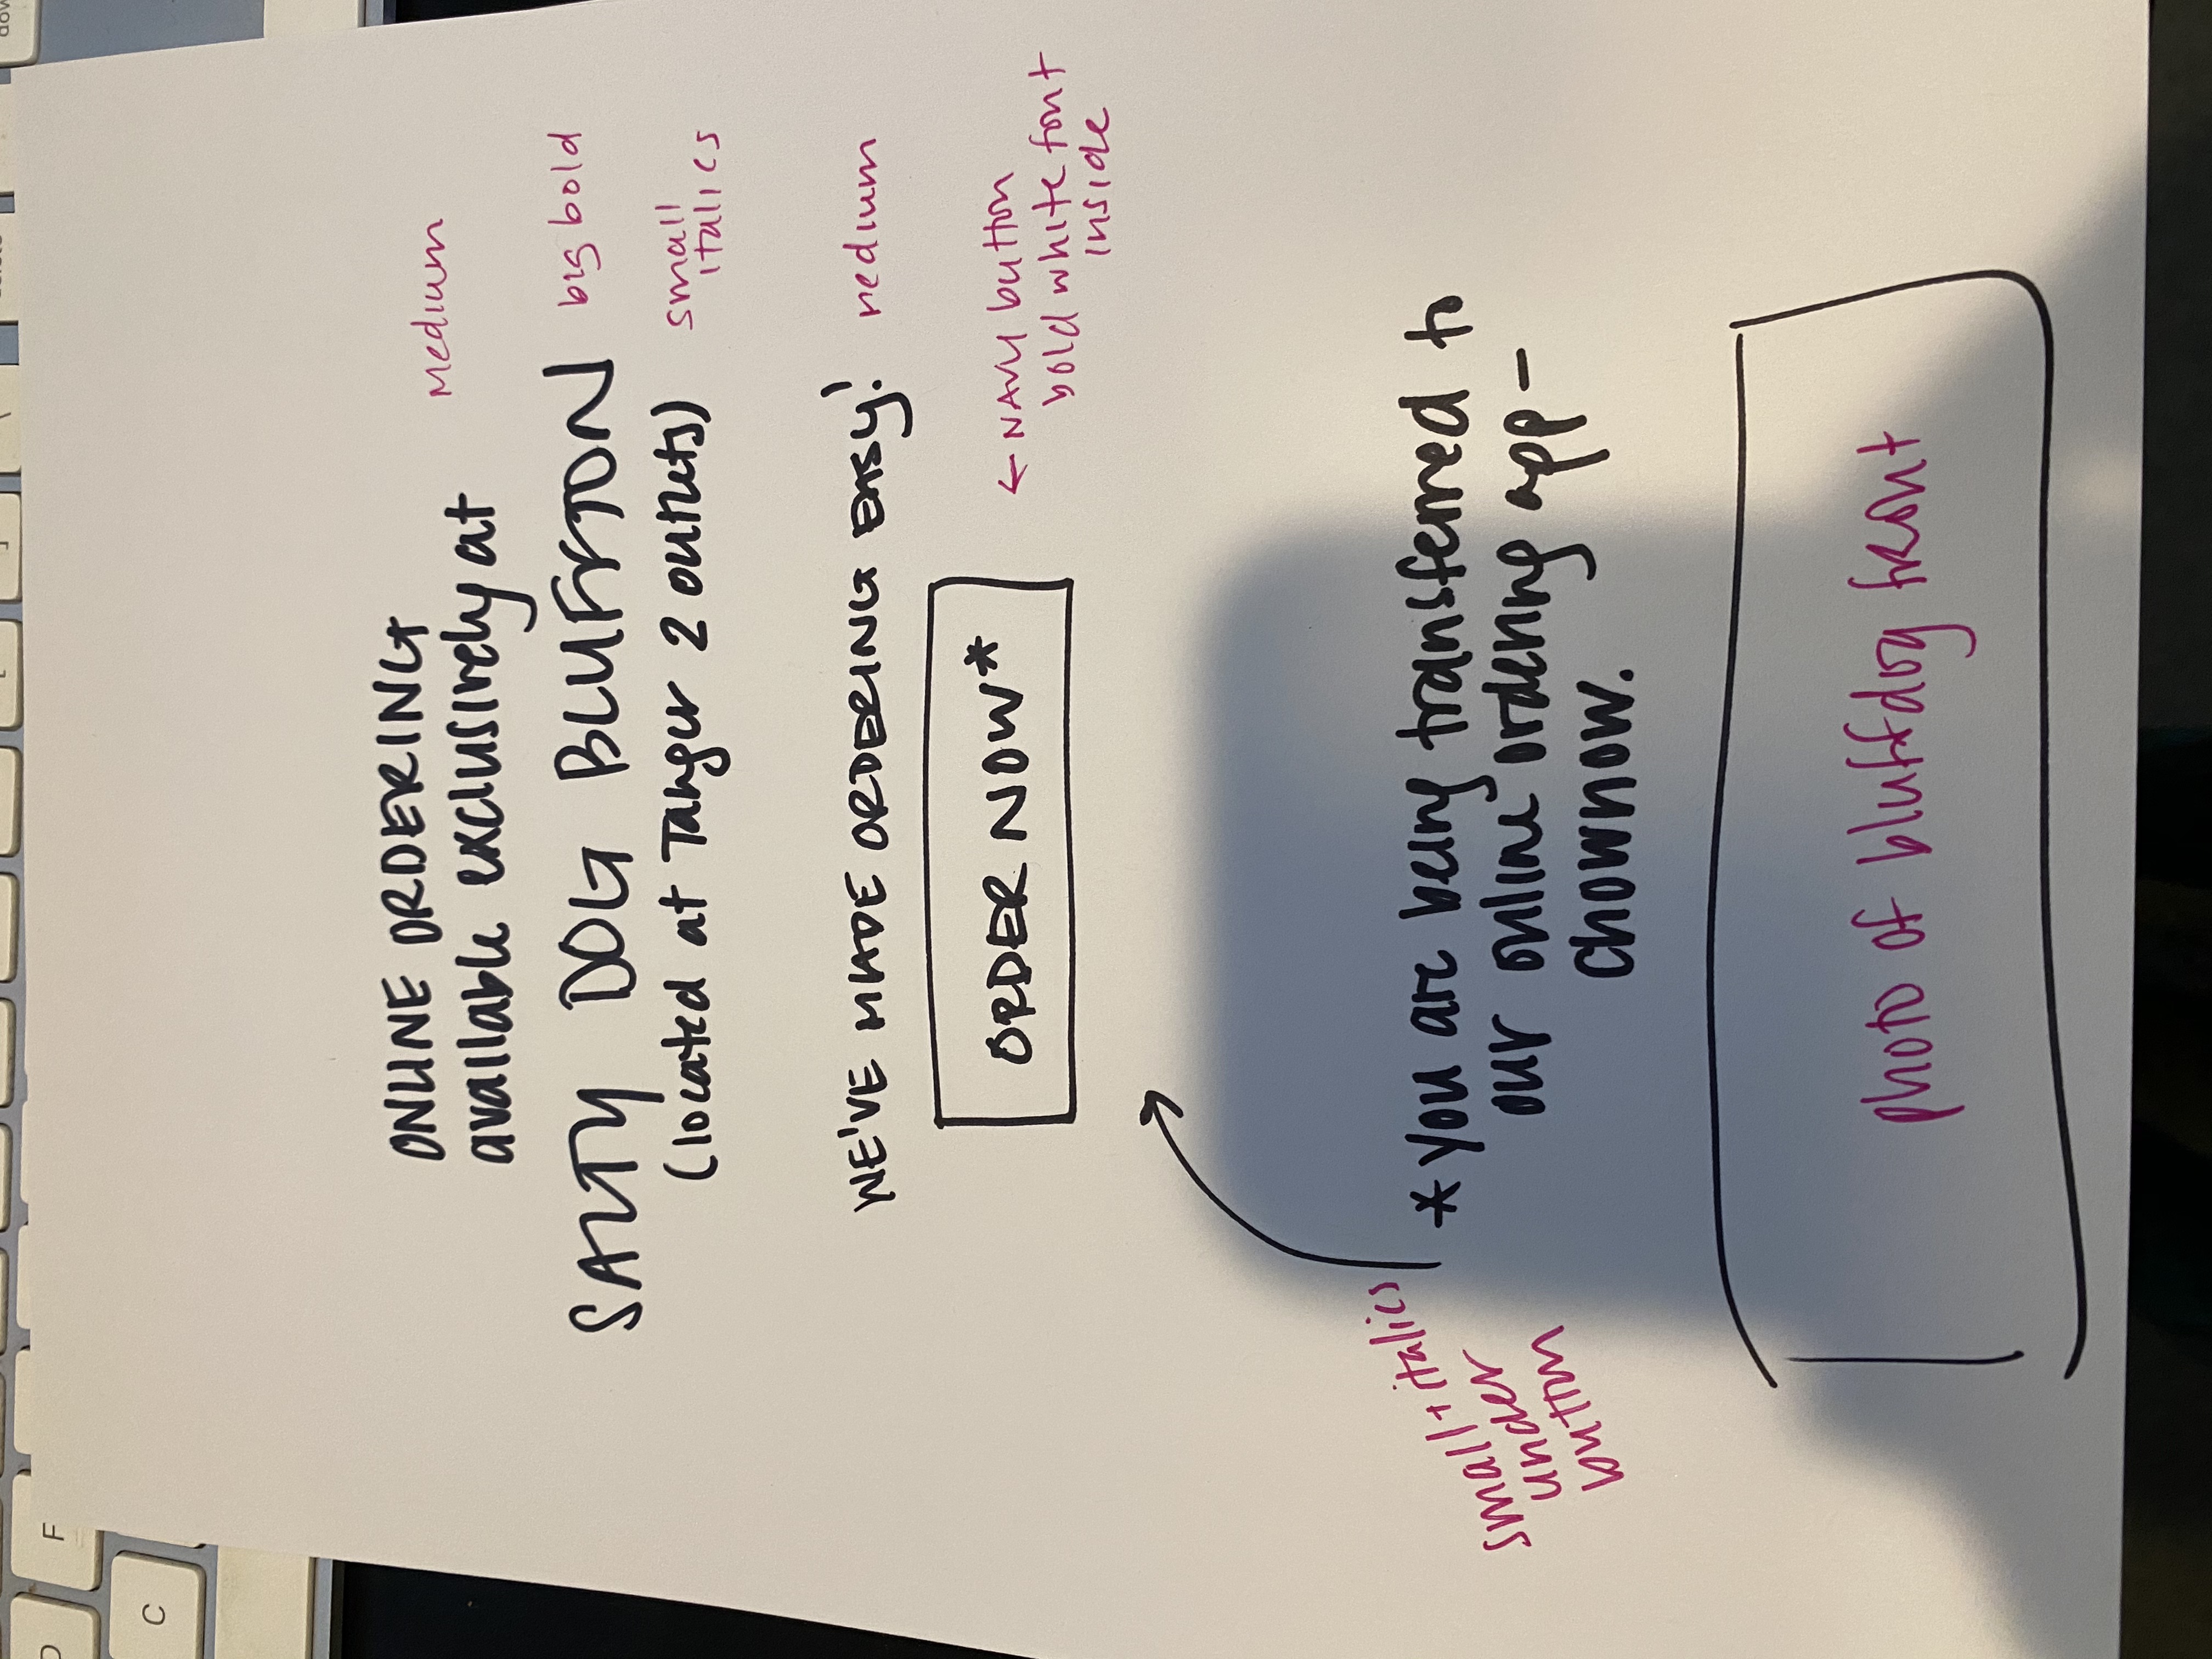 D
F
C
[
]
\
delete
ONLINE ORDERING
available exclusively at
Medium
SALTY DOG BLUFFTON
big bold
(located at Tanger 2 outlets)
small
italics
WE'VE MADE ORDERING EASY!
medium
ORDER NOW*
← NAVY button
bold white font
inside
small + italics
under
button
* you are being transferred to
our online ordering app -
chownow.
photo of bluffdog front